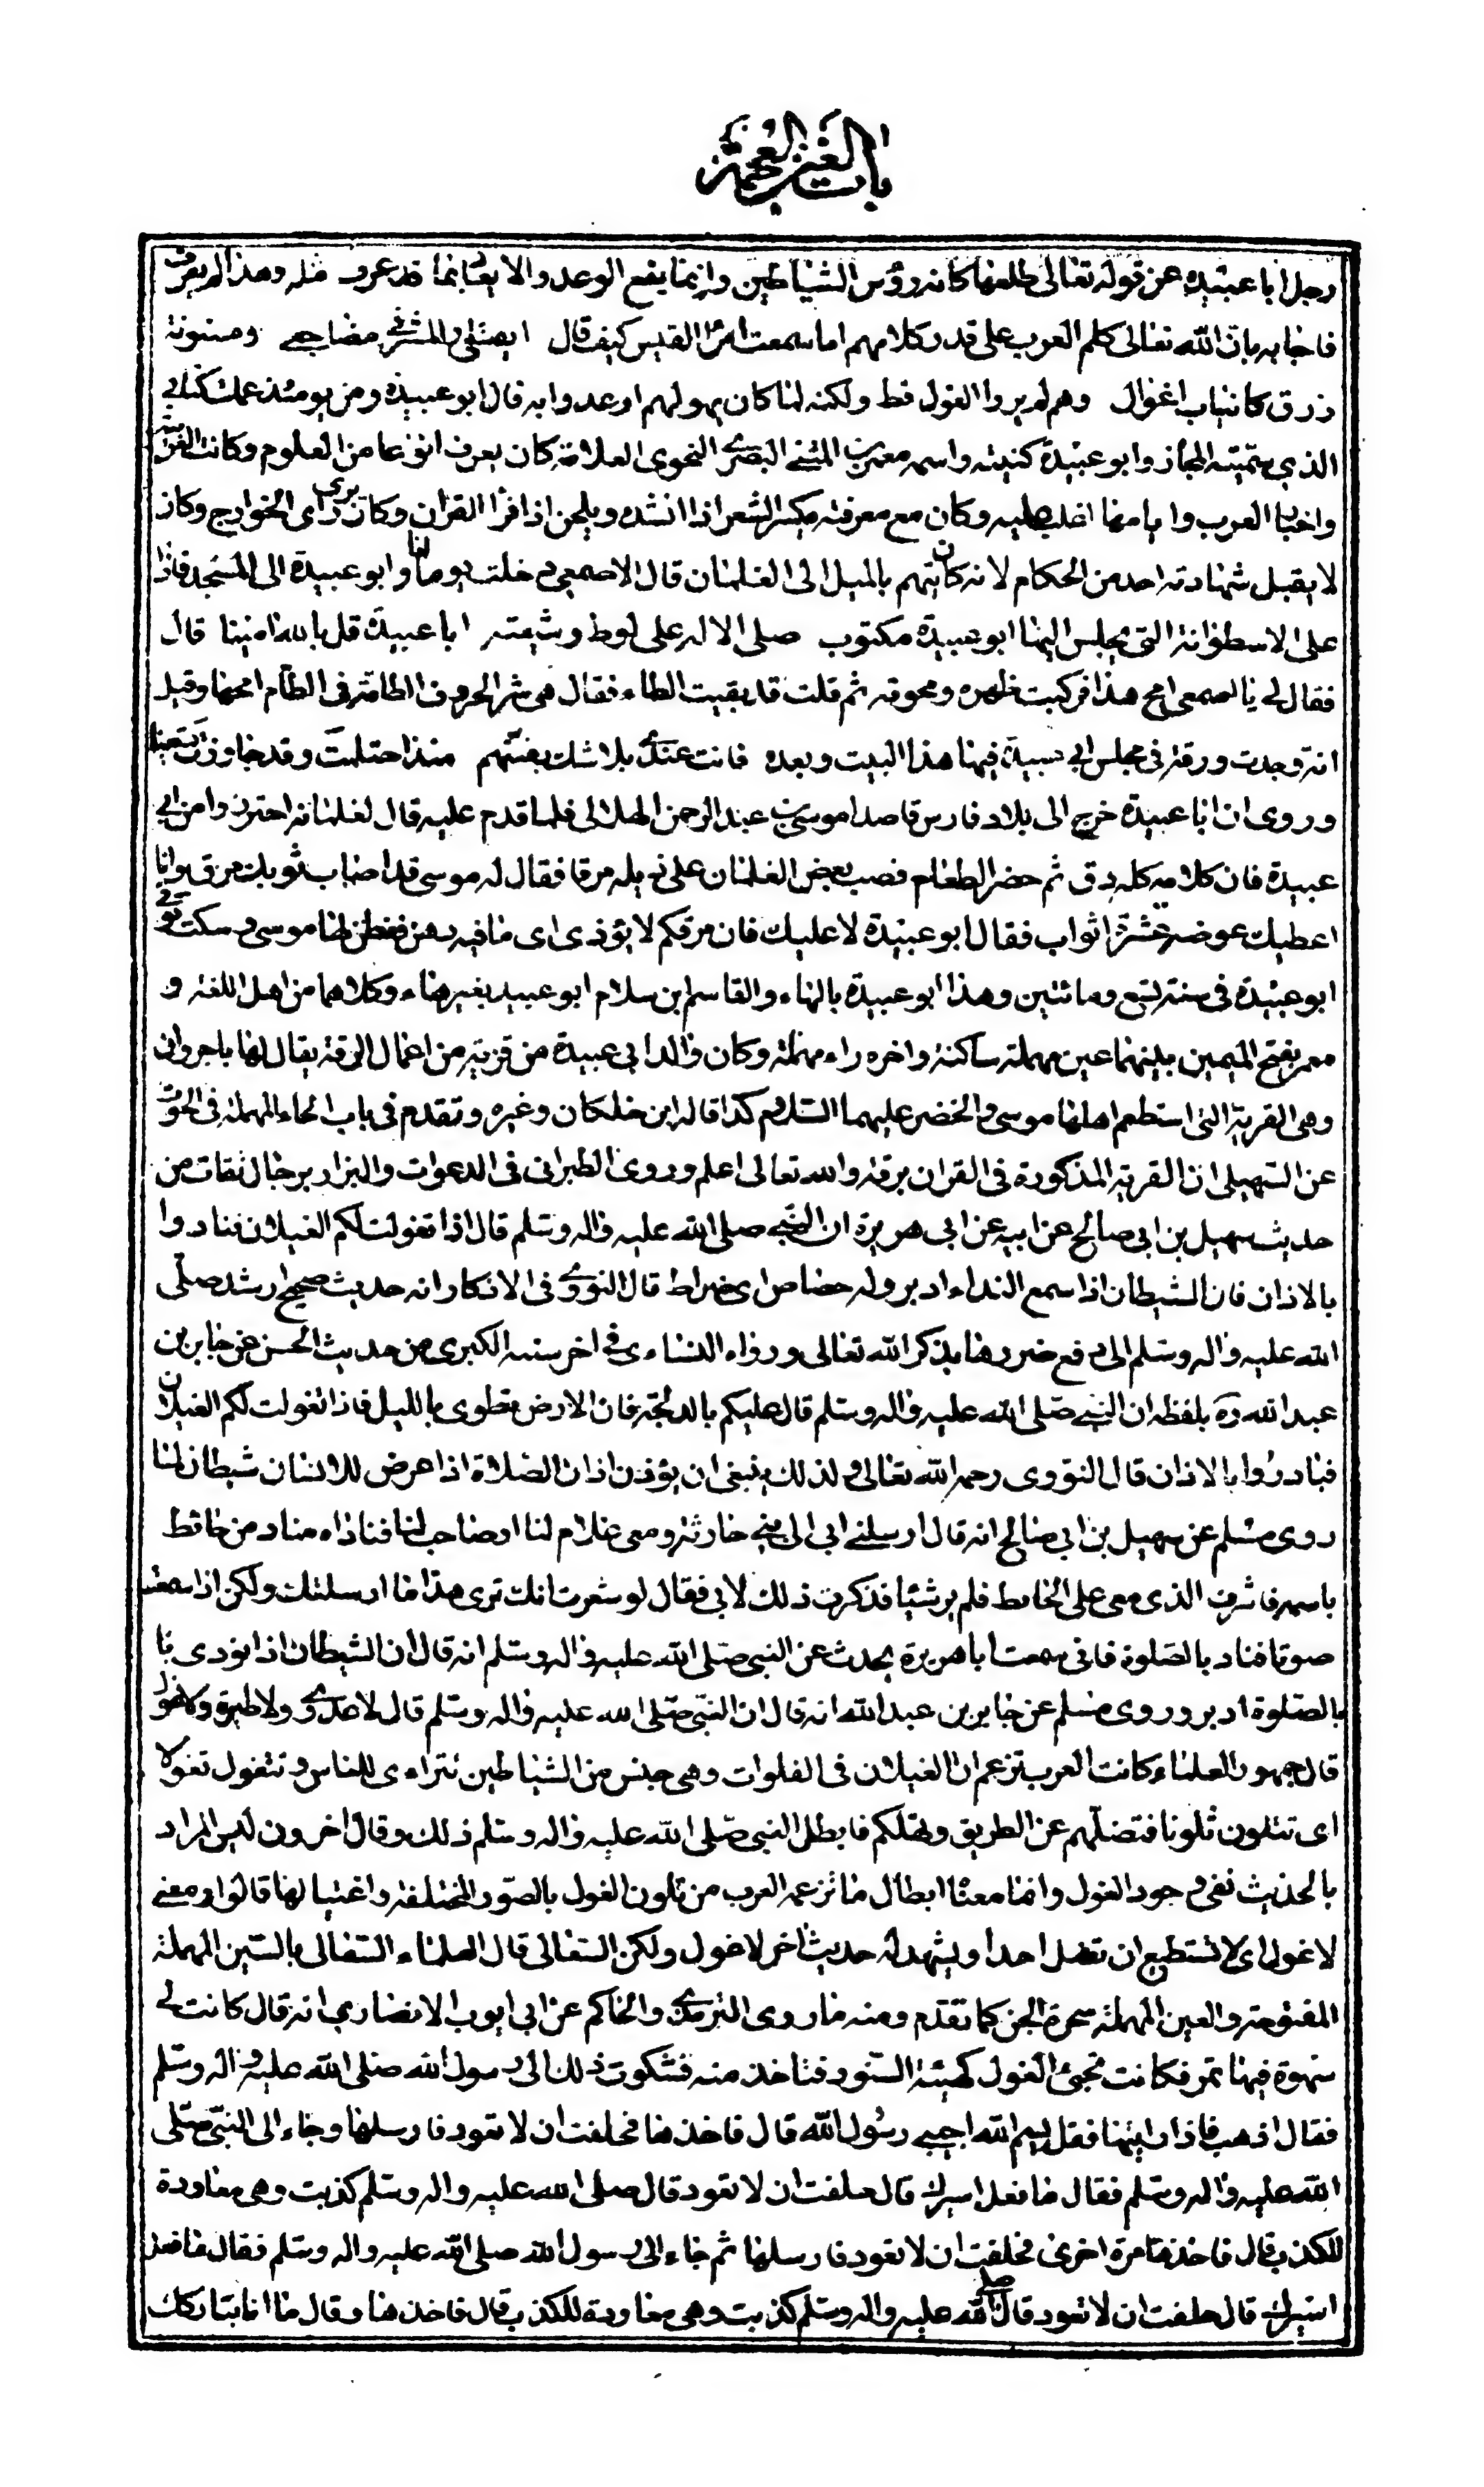 باب الغين المعجمة
رجل ابا عبيدة عن قوله تعالى طلعها كانه رؤس الشياطين وانما يقع الوعد والايعاد بما قد عرف مثله وهذا لم يعرف
فاجابه بان الله تعالى كلم العرب على قدر كلامهم اما سمعت امرأ القيس كيف قال ايقتلنى والمشرفي مضاجعي ومسنونة
زرق كانياب اغوال وهم لم يروا الغول قط ولكنه لما كان يهولهم اوعدوا به قال ابو عبيدة ومن يومئذ عملت كتابي
الذي سميته المجاز وابو عبيدة كنيته واسمه معمر بن المثنى البصرى النحوى العلامة كان يعرف انواعا من العلوم وكانت العربية
واخبار العرب وايامها اغلب عليه وكان مع معرفته يكسر الشعر اذا انشده ويلحن اذا قرأ القران وكان يرى راى الخوارج وكان
لا يقبل شهادته احد من الحكام لانه كان يتهم بالميل الى الغلمان قال الاصمعي دخلت يوما انا وابو عبيدة الى المسجد فاذا
على الاسطوانة التى يجلس اليها ابو عبيدة مكتوب صلى الاله على لوط وشيعته ابا عبيدة قل بالله امينا قال
فقال لي يا اصمعى امح هذا فركبت ظهره ومحوته ثم قلت قد بقيت الطاء فقال هى شر الحروف الطامة فى الطاء امحها وقيل
انه وجدت ورقة فى مجلس ابي عبيدة فيها هذا البيت وبعده فانت عندي بلا شك بقيتهم منذ احتلمت وقد جاوزت تسعينا
وروى ان ابا عبيدة خرج الى بلاد فارس قاصدا موسى بن عبد الرحمن الهلالى فلما قدم عليه قال لغلمانه احترزوا من ابي
عبيدة فان كلامه كله دق ثم حضر الطعام فصب بعض الغلمان على ذيله مرقا فقال له موسى قد اصاب ثوبك مرق وانا
اعطيك عوضه عشرة اثواب فقال ابو عبيدة لا عليك فان مرقكم لا يؤذى اى ما فيه دهن ففطن لها موسى وسكت توفي
ابو عبيدة فى سنة تسع ومائتين وهذا ابو عبيدة بالهاء والقاسم ابن سلام ابو عبيد بغير هاء وكلاهما من اهل اللغة و
معمر بفتح الميمين بينهما عين مهملة ساكنة واخره راء مهملة وكان والد ابى عبيدة من قرية من اعمال الرقة يقال لها باجروان
وهى القرية التى استطعم اهلها موسى والخضر عليهما السلام كذا قاله ابن خلكان وغيره وتقدم فى باب الحاء المهملة فى الحوت
عن السهيلى ان القرية المذكورة فى القران برقة والله تعالى اعلم وروى الطبرانى فى الدعوات والبزار برجال ثقات من
حديث سهيل بن ابى صالح عن ابيه عن ابى هريرة ان النبي صلى الله عليه واله وسلم قال اذا تغولت لكم الغيلان فنادوا
بالاذان فان الشيطان اذا سمع النداء ادبر وله حصاص اى ضراط قال النووي فى الاذكار انه حديث صحيح ارشد صلى
الله عليه واله وسلم الى دفع ضررها بذكر الله تعالى ورواه النساءى في اخر سننه الكبرى من حديث الحسن عن جابر بن
عبد الله رة بلفظه ان النبي صلى الله عليه واله وسلم قال عليكم بالدلجة فان الارض تطوى بالليل فاذا تغولت لكم الغيلان
فبادروا بالاذان قال النووى رحمه الله تعالى ولذلك ينبغى ان يؤذن اذان الصلاة اذا عرض للانسان شيطان لما
روى مسلم عن سهيل بن ابى صالح انه قال ارسلنى ابى الى بنى حارثة ومعى غلام لنا او صاحب لنا فناداه مناد من حائط
باسمه فاشرف الذى معى على الحائط فلم ير شيئا فذكرت ذلك لابى فقال لو شعرت انك ترى هذا ما ارسلتك ولكن اذا سمعت
صوتا فناد بالصلوة فانى سمعت ابا هريرة يحدث عن النبى صلى الله عليه واله وسلم انه قال ان الشيطان اذا نودى با
بالصلوة ادبر وروى مسلم عن جابر بن عبد الله انه قال ان النبي صلى الله عليه واله وسلم قال لا عدوى ولا طيرة ولا غول
قال جمهور العلماء كانت العرب تزعم ان الغيلان فى الفلوات وهى جنس من الشياطين تتراءى للناس وتتغول تغولا
اى تتلون تلونا فتضلهم عن الطريق وتهلكم فابطل النبى صلى الله عليه واله وسلم ذلك وقال اخرون ليس المراد
بالحديث نفى وجود الغول وانما معناه ابطال ما تزعمه العرب من تلون الغول بالصور المختلفة واغتيالها قالوا ومعنى
لا غول اى لا تستطيع ان تضل احدا ويشهد له حديث اخر لا غول ولكن السعالى قال العلماء السعالى بالسين المهملة
المفتوحة والعين المهملة سحرة الجن كما تقدم ومنه ما روى الترمذي والحاكم عن ابى ايوب الانصاري انه قال كانت لي
سهوة فيها تمر فكانت تجئ الغول كهيئة السنور فتاخذ منه فشكوت ذلك الى رسول الله صلى الله عليه واله وسلم
فقال اذهب فاذا رايتها فقل بسم الله اجيبي رسول الله قال فاخذها فحلفت ان لا تعود فارسلها وجاء الى النبي صلى
الله عليه واله وسلم فقال ما فعل اسيرك قال حلفت ان لا تعود قال صلى الله عليه واله وسلم كذبت وهى معاودة
للكذب قال فاخذها مرة اخرى فحلفت ان لا تعود فارسلها ثم جاء الى رسول الله صلى الله عليه واله وسلم فقال ما فعل
اسيرك قال حلفت ان لا تعود قال صلى الله عليه واله وسلم كذبت وهى معاودة للكذب قال فاخذها وقال ما انا بتاركك